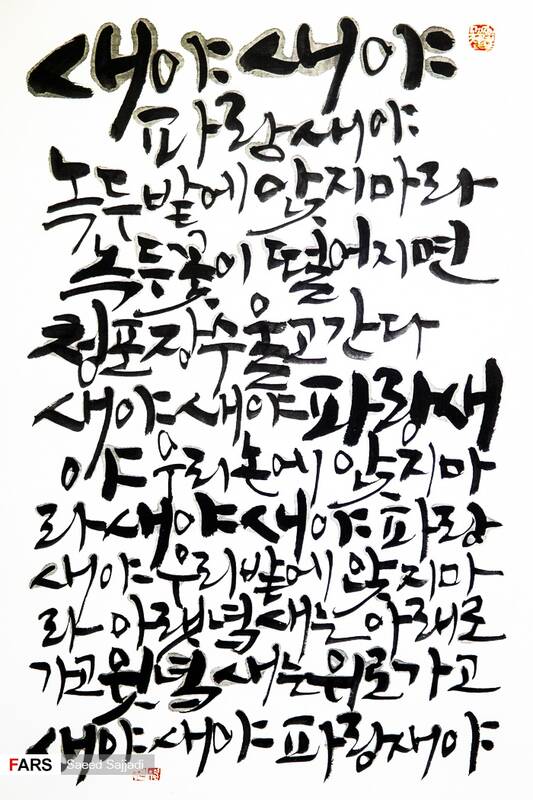 새야 새야
파랑새야
녹두밭에 앉지마라
녹두꽃이 떨어지면
청포장수 울고간다
새야 새야 파랑새
야 우리 논에 앉지마
라 새야 새야 파랑
새야 우리밭에 앉지마
라 아랫녘 새는 아래로
가고 윗녘 새는 위로 가고
새야 새야 파랑새야
FARS Saeed Sajjadi